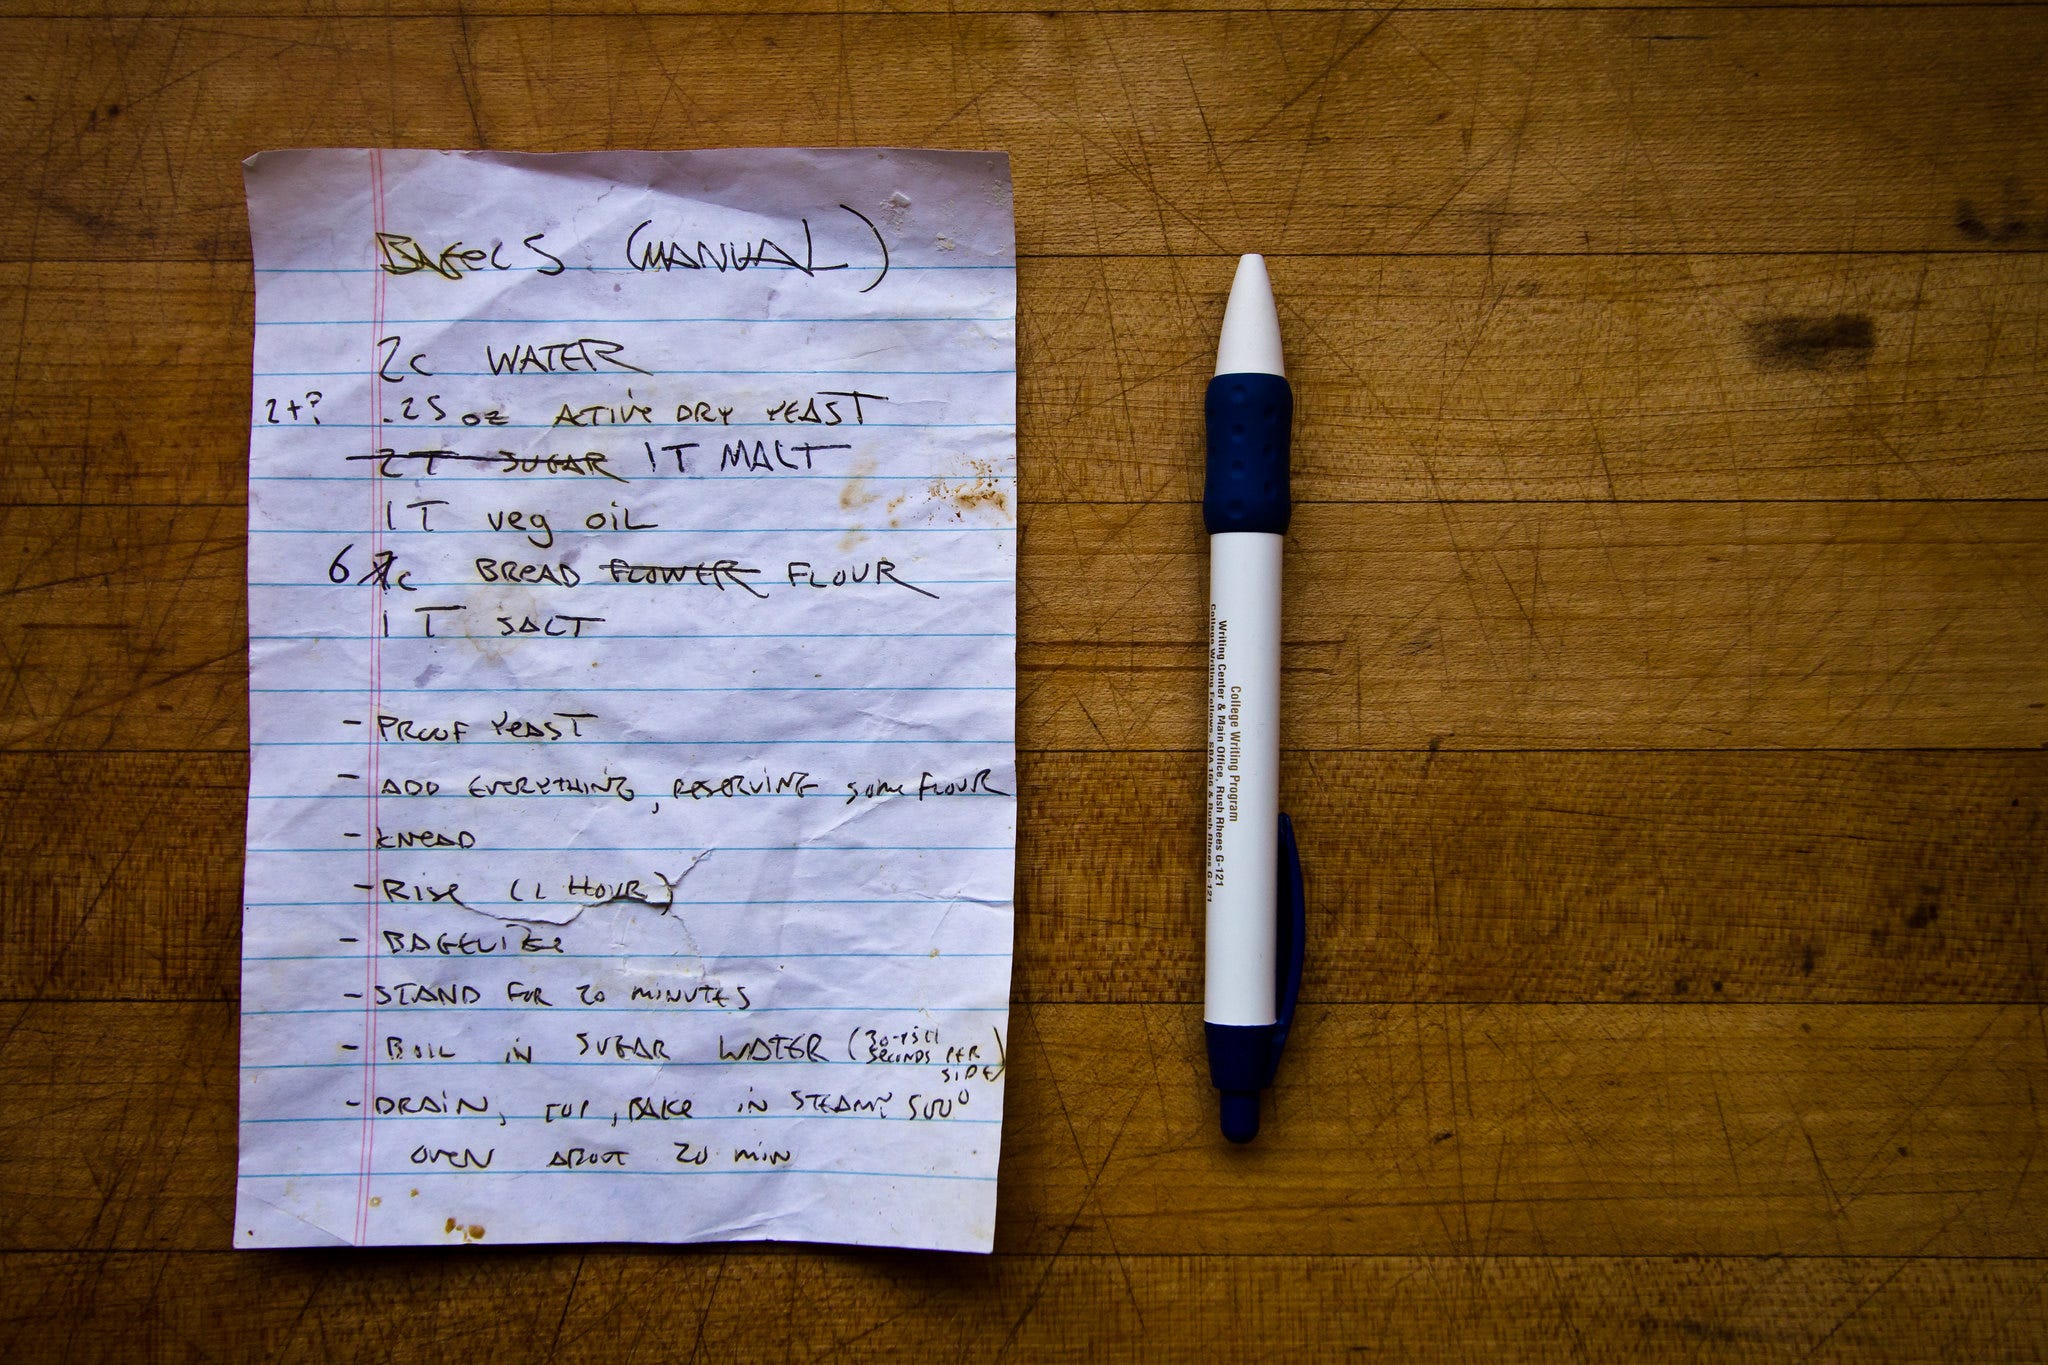 BAGELS (MANUAL)
2c WATER
2t? .25 oz ACTIVE DRY YEAST
2 T SUGAR 1 T MALT
1 T veg oil
6 7c BREAD FLOWER FLOUR
1 T SALT
- PROOF YEAST
- ADD EVERYTHING, RESERVING some FLOUR
- KNEAD
- RISE (1 HOUR)
- BAGELIZE
- STAND FOR 20 MINUTES
- BOIL in SUGAR WATER (30-45
SECONDS PER
SIDE)
- DRAIN, TOP, BAKE in STEAMY 500°
OVEN ABOUT 20 min
College Writing Program
Writing Center & Main Office, Rush Rhees G-121
College Writing Fellows, Rush Rhees G-121